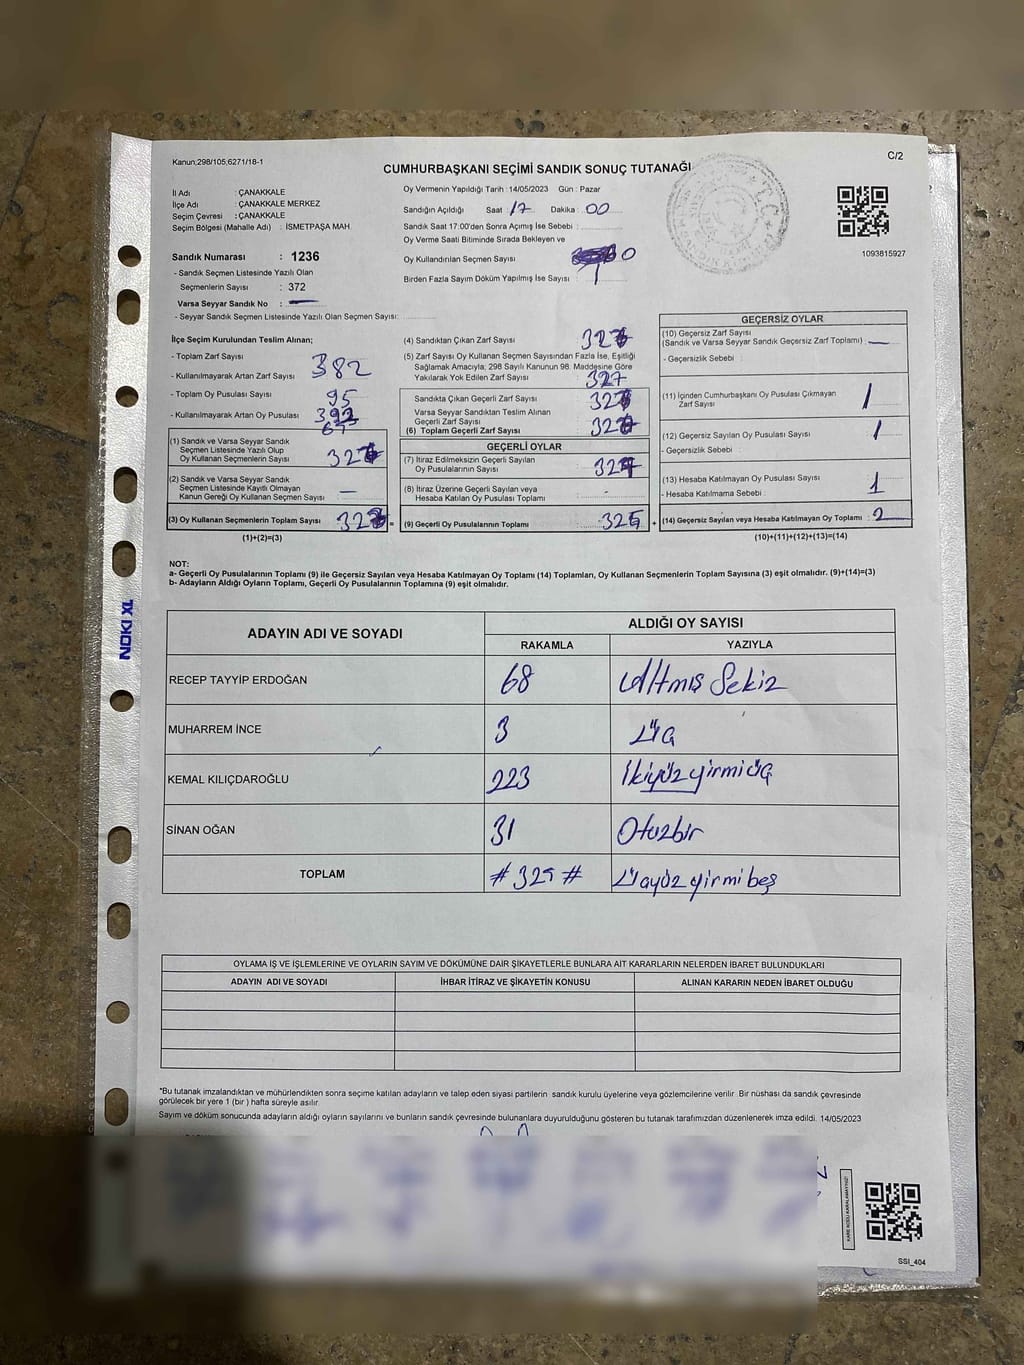 Kanun;298/105,6271/18-1
C/2
CUMHURBAŞKANI SEÇİMİ SANDIK SONUÇ TUTANAĞI
İl Adı : ÇANAKKALE
İlçe Adı : ÇANAKKALE MERKEZ
Seçim Çevresi : ÇANAKKALE
Seçim Bölgesi (Mahalle Adı) : İSMETPAŞA MAH.
Sandık Numarası : 1236
- Sandık Seçmen Listesinde Yazılı Olan
Seçmenlerin Sayısı : 372
Varsa Seyyar Sandık No :
- Seyyar Sandık Seçmen Listesinde Yazılı Olan Seçmen Sayısı:
Oy Vermenin Yapıldığı Tarih : 14/05/2023 Gün : Pazar
Sandığın Açıldığı Saat : 17 Dakika : 00
Sandık Saat 17:00'den Sonra Açımış İse Sebebi :
Oy Verme Saati Bitiminde Sırada Bekleyen ve
Oy Kullandırılan Seçmen Sayısı 0
Birden Fazla Sayım Döküm Yapılmış İse Sayısı : 1
1093815927
İlçe Seçim Kurulundan Teslim Alınan;
- Toplam Zarf Sayısı 382
- Kullanılmayarak Artan Zarf Sayısı
- Toplam Oy Pusulası Sayısı 95
- Kullanılmayarak Artan Oy Pusulası
(1) Sandık ve Varsa Seyyar Sandık
Seçmen Listesinde Yazılı Olup
Oy Kullanan Seçmenlerin Sayısı
(2) Sandık ve Varsa Seyyar Sandık
Seçmen Listesinde Kayıtlı Olmayan
Kanun Gereği Oy Kullanan Seçmen Sayısı : —
(3) Oy Kullanan Seçmenlerin Toplam Sayısı
(1)+(2)=(3)
(4) Sandıktan Çıkan Zarf Sayısı
(5) Zarf Sayısı Oy Kullanan Seçmen Sayısından Fazla İse, Eşitliği
Sağlamak Amacıyla; 298 Sayılı Kanunun 98. Maddesine Göre
Yakılarak Yok Edilen Zarf Sayısı : 327
Sandıkta Çıkan Geçerli Zarf Sayısı
Varsa Seyyar Sandıktan Teslim Alınan
Geçerli Zarf Sayısı
(6) Toplam Geçerli Zarf Sayısı
GEÇERLİ OYLAR
(7) İtiraz Edilmeksizin Geçerli Sayılan
Oy Pusulalarının Sayısı
(8) İtiraz Üzerine Geçerli Sayılan veya
Hesaba Katılan Oy Pusulası Toplamı -
(9) Geçerli Oy Pusulalarının Toplamı : 325
GEÇERSİZ OYLAR
(10) Geçersiz Zarf Sayısı
(Sandık ve Varsa Seyyar Sandık Geçersiz Zarf Toplamı) : —
- Geçersizlik Sebebi :
(11) İçinden Cumhurbaşkanı Oy Pusulası Çıkmayan
Zarf Sayısı 1
(12) Geçersiz Sayılan Oy Pusulası Sayısı : 1
- Geçersizlik Sebebi :
(13) Hesaba Katılmayan Oy Pusulası Sayısı : 1
- Hesaba Katılmama Sebebi :
(14) Geçersiz Sayılan veya Hesaba Katılmayan Oy Toplamı : 2
(10)+(11)+(12)+(13)=(14)
NOT:
a- Geçerli Oy Pusulalarının Toplamı (9) ile Geçersiz Sayılan veya Hesaba Katılmayan Oy Toplamı (14) Toplamları, Oy Kullanan Seçmenlerin Toplam Sayısına (3) eşit olmalıdır. (9)+(14)=(3)
b- Adayların Aldığı Oyların Toplamı, Geçerli Oy Pusulalarının Toplamına (9) eşit olmalıdır.
ADAYIN ADI VE SOYADI
ALDIĞI OY SAYISI
RAKAMLA YAZIYLA
RECEP TAYYİP ERDOĞAN 68 Altmış Sekiz
MUHARREM İNCE 3 Üç
KEMAL KILIÇDAROĞLU 223 İkiyüzyirmiüç
SİNAN OĞAN 31 Otuzbir
TOPLAM # 325 # Üçyüzyirmibeş
OYLAMA İŞ VE İŞLEMLERİNE VE OYLARIN SAYIM VE DÖKÜMÜNE DAİR ŞİKAYETLERLE BUNLARA AİT KARARLARIN NELERDEN İBARET BULUNDUKLARI
ADAYIN ADI VE SOYADI İHBAR İTİRAZ VE ŞİKAYETİN KONUSU ALINAN KARARIN NEDEN İBARET OLDUĞU
*Bu tutanak imzalandıktan ve mühürlendikten sonra seçime katılan adayların ve talep eden siyasi partilerin sandık kurulu üyelerine veya gözlemcilerine verilir. Bir nüshası da sandık çevresinde
görülecek bir yere 1 (bir ) hafta süreyle asılır.
Sayım ve döküm sonucunda adayların aldığı oyların sayılarını ve bunların sandık çevresinde bulunanlara duyurulduğunu gösteren bu tutanak tarafımızdan düzenlenerek imza edildi. 14/05/2023
KARE KODU KARALAMAYINIZ!
SSI_404
NOKI XL